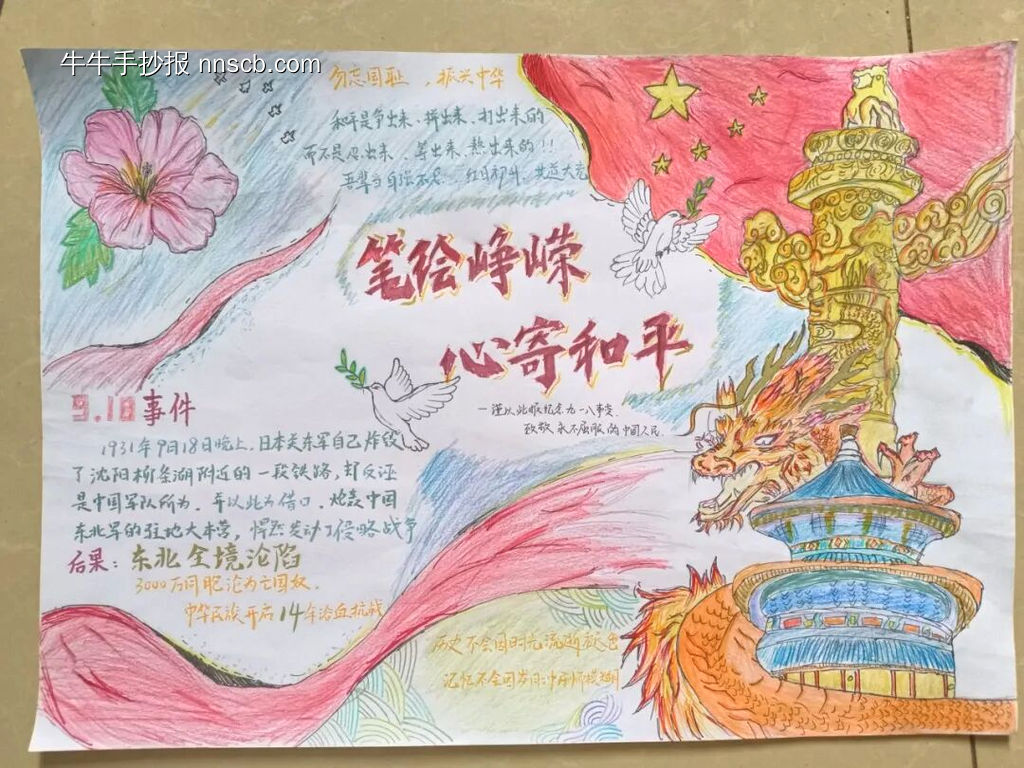 牛牛手抄报 nnscb.com
勿忘国耻，振兴中华
和平是争出来、拼出来、打出来的
而不是忍出来、等出来、熬出来的!!
吾辈当自强不息
笔绘峥嵘
心寄和平
—谨以此报纪念九一八事变
致敬永不屈服的中国人民
9.18事件
1931年9月18日晚上，日本关东军自己炸毁
了沈阳柳条湖附近的一段铁路，却反诬
是中国军队所为，并以此为借口，炮轰中国
东北军的驻地大本营，悍然发动了侵略战争
后果：东北全境沦陷
3000万同胞沦为亡国奴
中华民族开启14年浴血抗战
历史不会因时光流逝
记忆不会因岁月冲刷